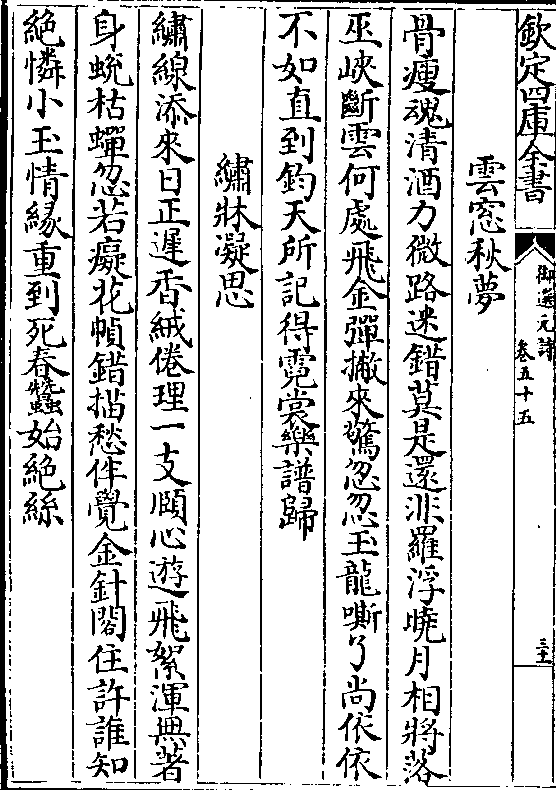 欽定四庫全書
御選元詩
卷五十五
三十一
雲窓秋夢
骨瘦魂清酒力微路迷錯莫是還非羅浮曉月相將落
巫峽斷雲何處飛金彈撇來驚忽忽玉龍嘶了尚依依
不如直到鈞天所記得霓裳樂譜歸
繡牀凝思
繡線添來日正遲香絨倦理一支頤心遊飛絮渾無著
身蛻枯蟬忽若癡花幀錯描愁伴覺金針閣住許誰知
絶憐小玉情緣重到死春蠶始絶絲